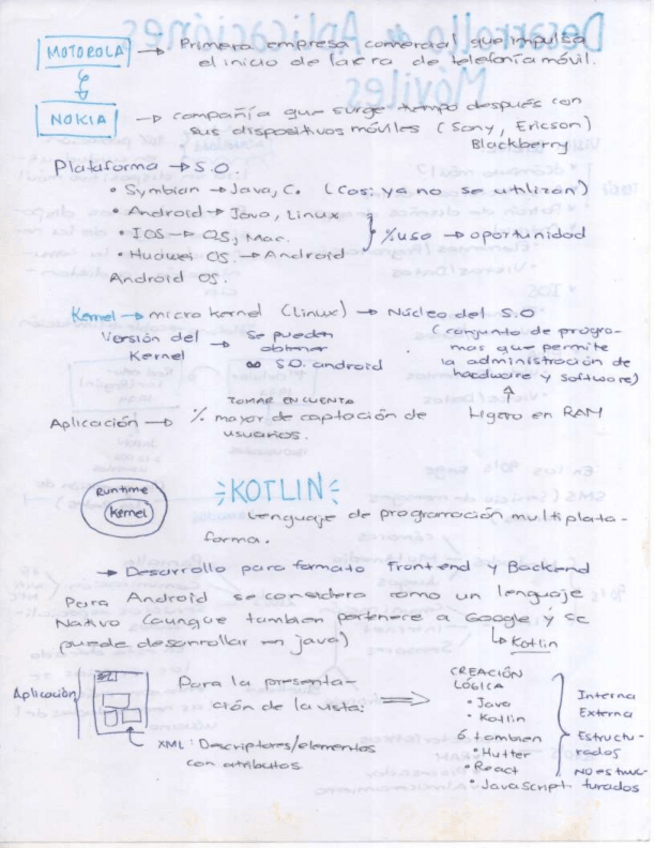 MOTOROLA → Primera empresa comercial que impulsa
el inicio de la era de telefonía móvil.
NOKIA → compañía que surge tiempo después con
sus dispositivos móviles (Sony, Ericson)
Blackberry
Plataforma → S.O
• Symbian → Java, C. (Casi ya no se utilizan)
• Android → Java, Linux
• IOS → OS, Mac. } % uso → oportunidad
• Huawei OS. → Android
Android OS.
Kernel → micro kernel (Linux) → Núcleo del S.O
Versión del → Se pueden (conjunto de progra-
Kernel obtener mas que permite
∞ S.O. android la administración de
hardware y software)
TOMAR EN CUENTA
Aplicación → % mayor de captación de Ligero en RAM
usuarios.
Runtime
Kernel
KOTLIN
Lenguaje de programación multiplata-
forma.
→ Desarrollo para formato Frontend y Backend
Para Android se considera como un lenguaje
Nativo (aunque tambien pertenece a Google y se
puede desarrollar en java) ↳ Kotlin
Aplicación
Para la presenta-
ción de la vista: ⇒
XML: Descriptores/elementos
con atributos
CREACIÓN
LÓGICA
• Java
• Kotlin
ó tambien
• Flutter
• React
• JavaScript
Interna
Externa
Estructu-
rados
NO estruc-
turados